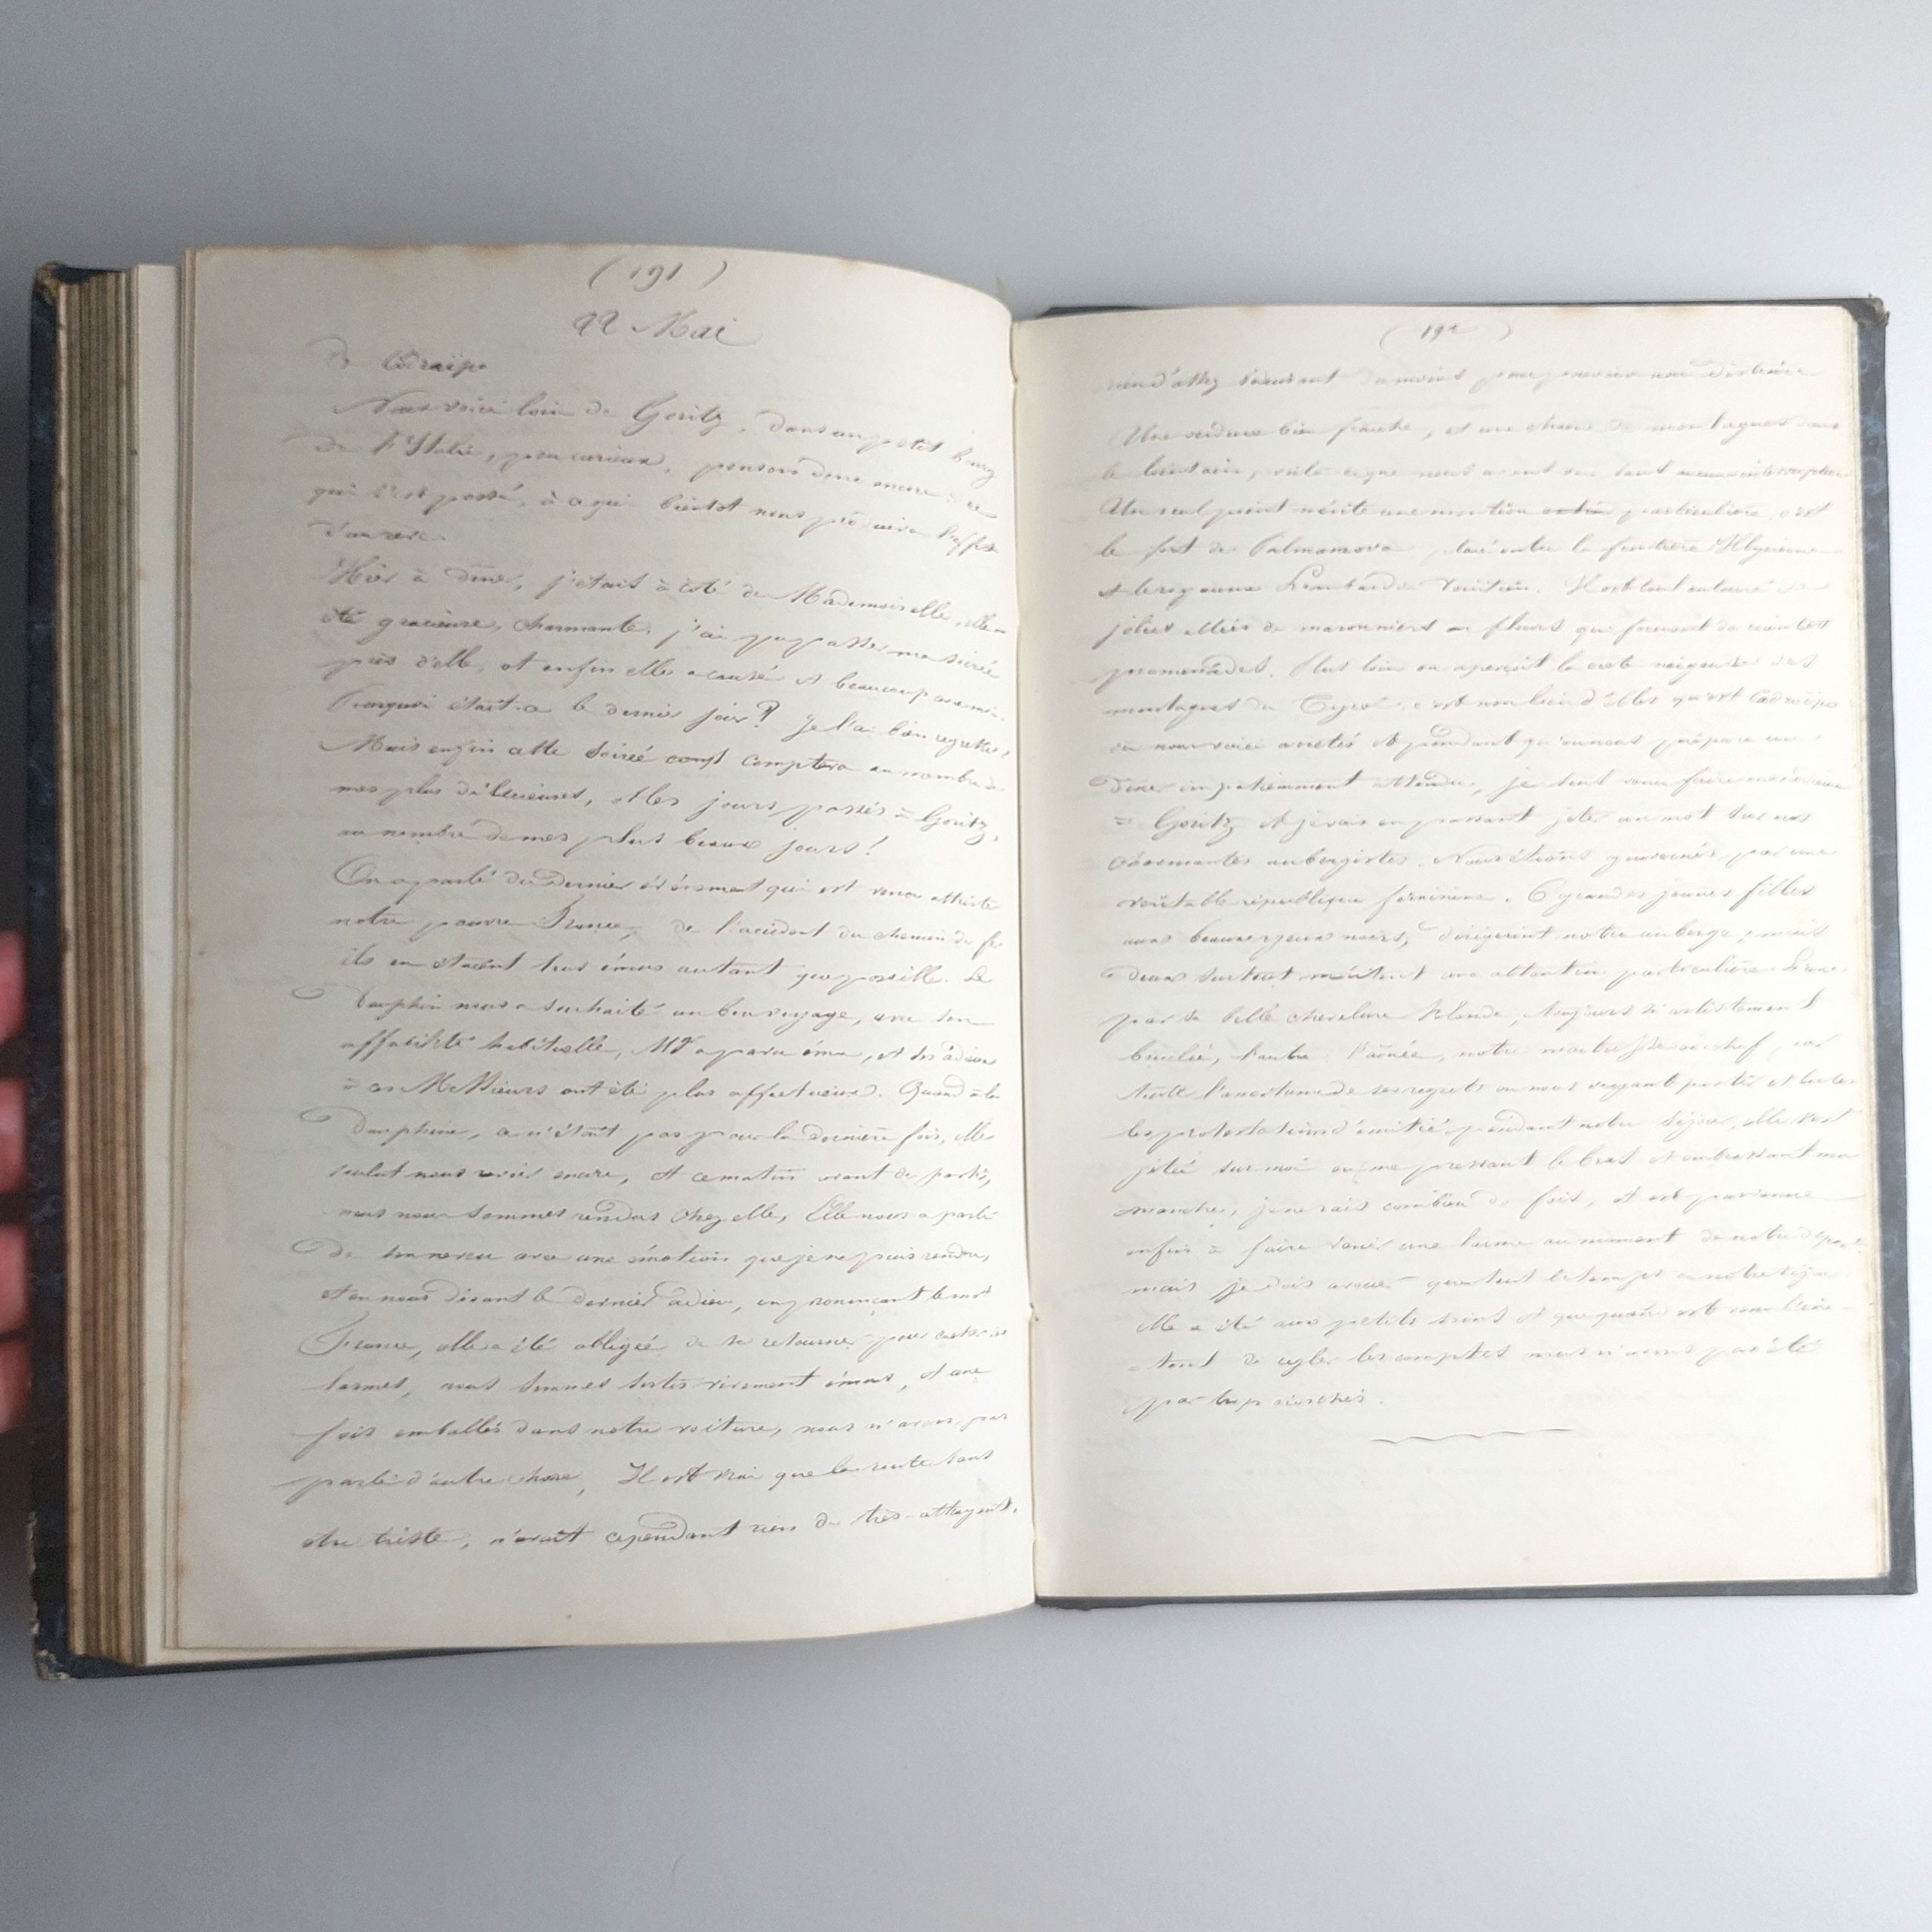 ( 191 )
22 Mai
de Codroïpo
Nous voici loin de Goritz, dans un petit bourg
de l'Italie, peu curieux, pensons donc encore à ce
qui s'est passé, à ce qui bientôt nous produira l'effet
d'un rêve.
Hier à dîner, j'étais à côté de Mademoiselle, elle a
été gracieuse, charmante, j'ai pu passer ma soirée
près d'elle, et enfin elle a causé et beaucoup avec moi.
Pourquoi était-ce le dernier jour ? Je l'ai bien regretté !
Mais enfin cette soirée comptera au nombre de
mes plus délicieuses, et les jours passés à Goritz,
au nombre de mes plus beaux jours !
On a parlé du dernier événement qui est venu attrister
notre pauvre France, de l'accident du chemin de fer
ils en étaient tous émus autant que possible. Le
Dauphin nous a souhaité un bon voyage, avec son
affabilité habituelle, Mr a paru ému, et ses adieux
à ces Messieurs ont été plus affectueux. Quand à la
Dauphine, ce n'était pas pour la dernière fois, elle
voulut nous revoir encore, et ce matin avant de partir,
nous nous sommes rendus chez elle, Elle nous a parlé
de son neveu avec une émotion que je ne puis rendre,
et en nous disant le dernier adieu, en prononçant le mot
France, elle a été obligée de se retourner pour cacher ses
larmes, nous sommes sortis vivement émus, et une
fois emballés dans notre voiture, nous n'avons pas
parlé d'autre chose, Il est vrai que la route sans
être triste, n'avait cependant rien de très-attrayant,
( 192 )
rien d'assez du moins pour une
Une verdure bien fraîche, et une chaine de montagnes dans
le lointain, voilà ce que nous avons vu tout
Un seul point mérite une mention particulière, c'est
le fort de Palmanova, situé entre la frontière Illyrienne
et le royaume Lombardo Vénitien. Il est tout entouré de
jolies allées de maronniers en fleurs qui forment de
promenades. Plus loin on aperçoit la crête neigeuse des
montagnes du Tyrol, c'est non loin d'elles qu'est Codroïpo
où nous voici arrêtés et pendant qu'on nous prépare un
dîner impatiemment attendu, je
à Goritz et je vais en passant jeter un mot sur nos
charmantes aubergistes. Nous étions gouvernés par une
véritable république féminine. 6 grandes jeunes filles
aux beaux yeux noirs, dirigeaient notre auberge ; mais
deux surtout méritent une attention particulière. L'une
par sa belle chevelure blonde, toujours si artistement
bouclée, l'autre l'aînée, notre en chef, par
de ses regrets en nous voyant partir et toutes
les protestations d'amitié pendant notre séjour, elle s'est
jetée sur moi en me pressant le bras et embrassant ma
manche, je ne sais combien de fois, et est parvenue
enfin à faire venir une larme au moment de notre départ
mais je dois avouer que tout le temps de notre séjour
elle a été aux petits soins et que quand est venu l'ins-
tant de régler les comptes nous n'avons pas été
par trop écorchés.